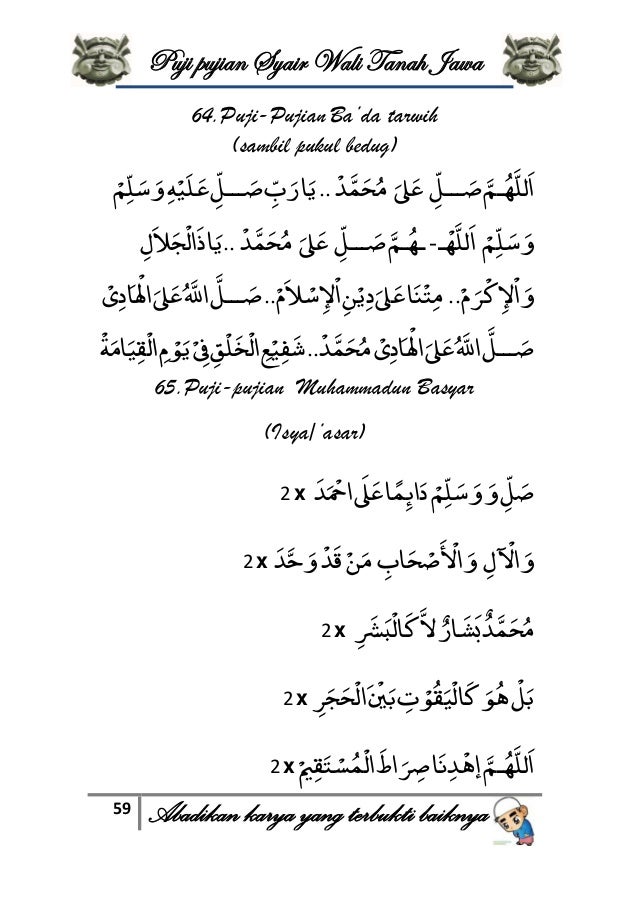 Puji pujian Syair Wali Tanah Jawa
64.Puji-Pujian Ba'da tarwih
(sambil pukul bedug)
اَللَّهُـمَّ صَــــلِّ عَلَى مُحَمَّدْ .. يَارَبِّ صَــــلِّ عَـلَيْهِ وَسَلِّمْ
وَسَلِّمْ اَللَّهْـ-ـهُـمَّ صَــــلِّ عَلَى مُحَمَّدْ .. يَاذَالْجَلَالِ
وَاْلإِكْرَمْ .. مِتْنَاعَلَى دِيْنِ اْلإِسْلَامْ..صَــــلَّ اللهُ عَلَى الْهَادِىْ
صَــــلَّ اللهُ عَلَى الْهَادِىْ مُحَمَّدْ..شَفِيْعِ الْخَلْقِ فِىْ يَوْمِ الْقِيَامَةْ
65.Puji-pujian Muhammadun Basyar
(Isya/'asar)
صَلِّ وَوَسَلِّمْ دَائِمًا عَلَى احْمَدَ 2x
وَاْلآلِ وَاْلأَصْحَابِ مَنْ قَدْ وَحَّدَ 2x
مُحَمَّدٌ بَشَـارٌ لاَّ كَالْبَشَرِ 2x
بَلْ هُوَ كَالْيَقُوْتِ بَيْنَ الْحَجَرِ 2x
اَللَّهُـمَّ إهْدِنَاصِرَاطَ الْمُسْتَقِيْمْ 2x
59 Abadikan karya yang terbukti baiknya